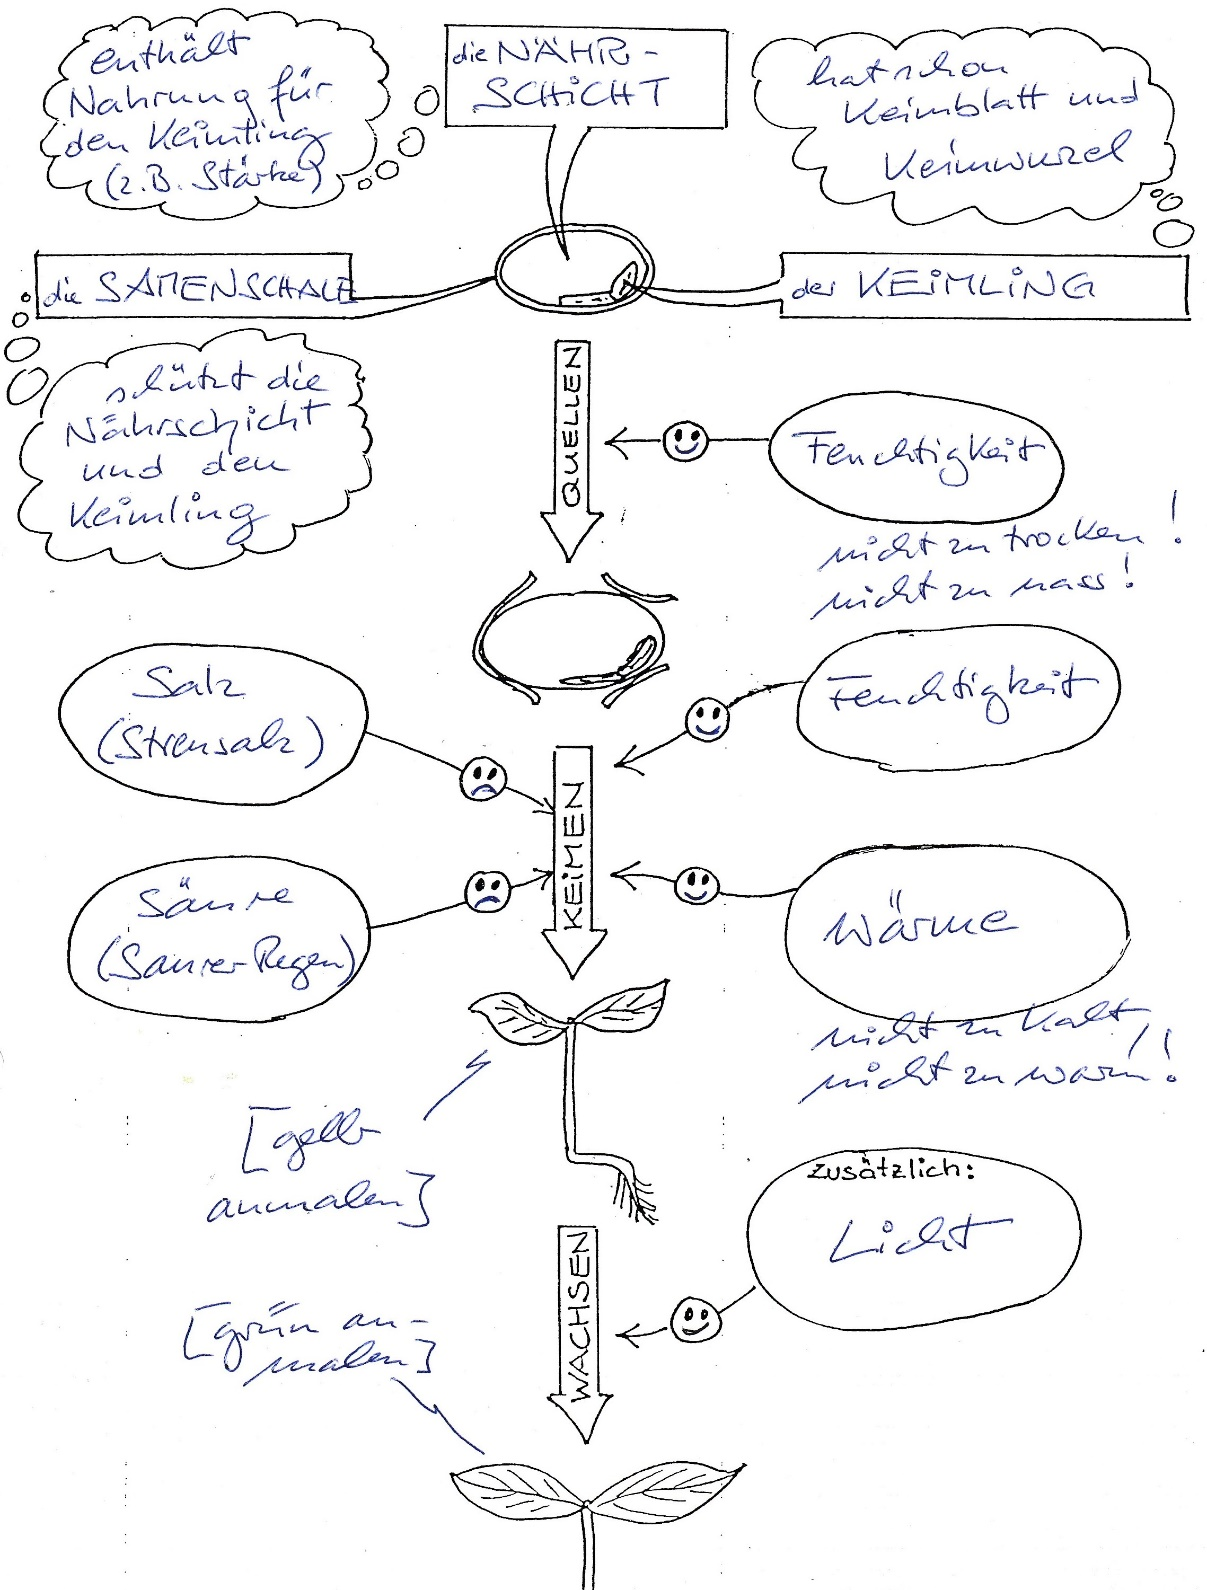 enthält
Nahrung für
den Keimling
(z.B. Stärke)
die NÄHR-
SCHICHT
hat schon
Keimblatt und
Keimwurzel
die SAMENSCHALE
der KEIMLING
schützt die
Nährschicht
und den
Keimling
QUELLEN
Feuchtigkeit
nicht zu trocken!
nicht zu nass!
Salz
(Streusalz)
Feuchtigkeit
KEIMEN
Säure
(Saurer Regen)
Wärme
nicht zu kalt,
nicht zu warm!!
[gelb
anmalen]
zusätzlich:
Licht
WACHSEN
[grün an-
malen]